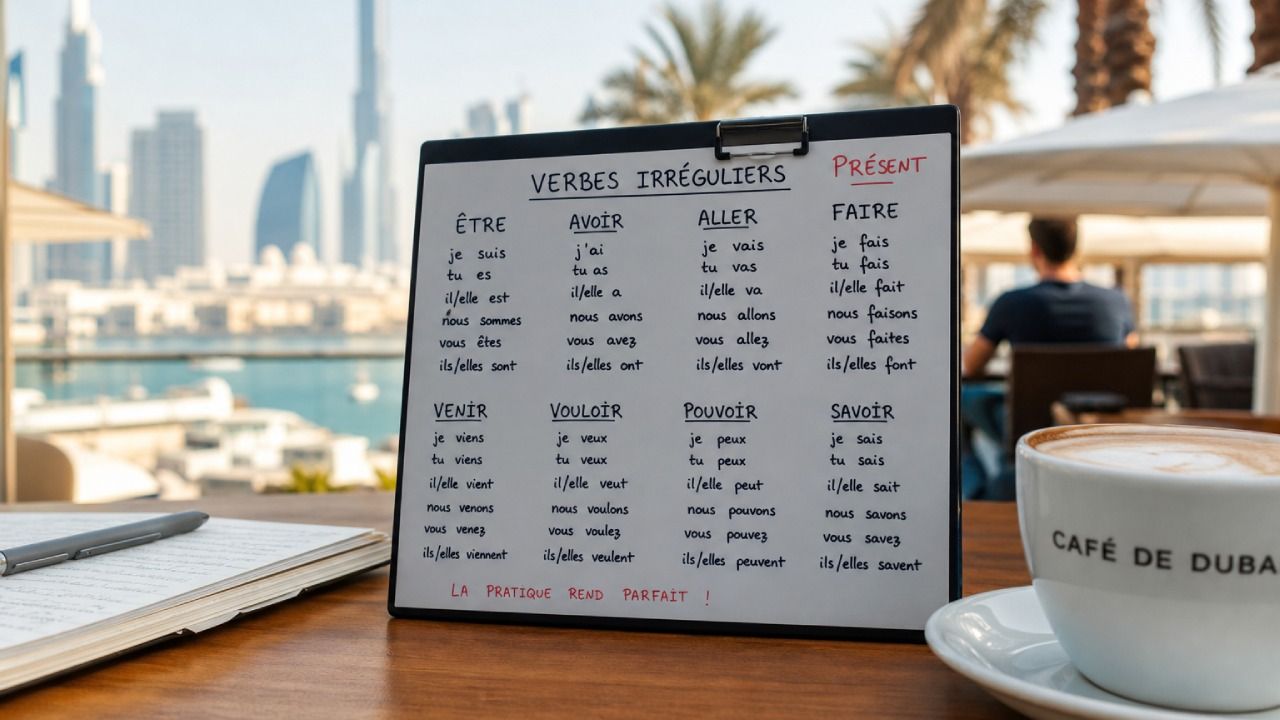 VERBES IRRÉGULIERS
PRÉSENT
ÊTRE
je suis
tu es
il/elle est
nous sommes
vous êtes
ils/elles sont
AVOIR
j'ai
tu as
il/elle a
nous avons
vous avez
ils/elles ont
ALLER
je vais
tu vas
il/elle va
nous allons
vous allez
ils/elles vont
FAIRE
je fais
tu fais
il/elle fait
nous faisons
vous faites
ils/elles font
VENIR
je viens
tu viens
il/elle vient
nous venons
vous venez
ils/elles viennent
VOULOIR
je veux
tu veux
il/elle veut
nous voulons
vous voulez
ils/elles veulent
POUVOIR
je peux
tu peux
il/elle peut
nous pouvons
vous pouvez
ils/elles peuvent
SAVOIR
je sais
tu sais
il/elle sait
nous savons
vous savez
ils/elles savent
LA PRATIQUE REND PARFAIT !
CAFÉ DE DUBA